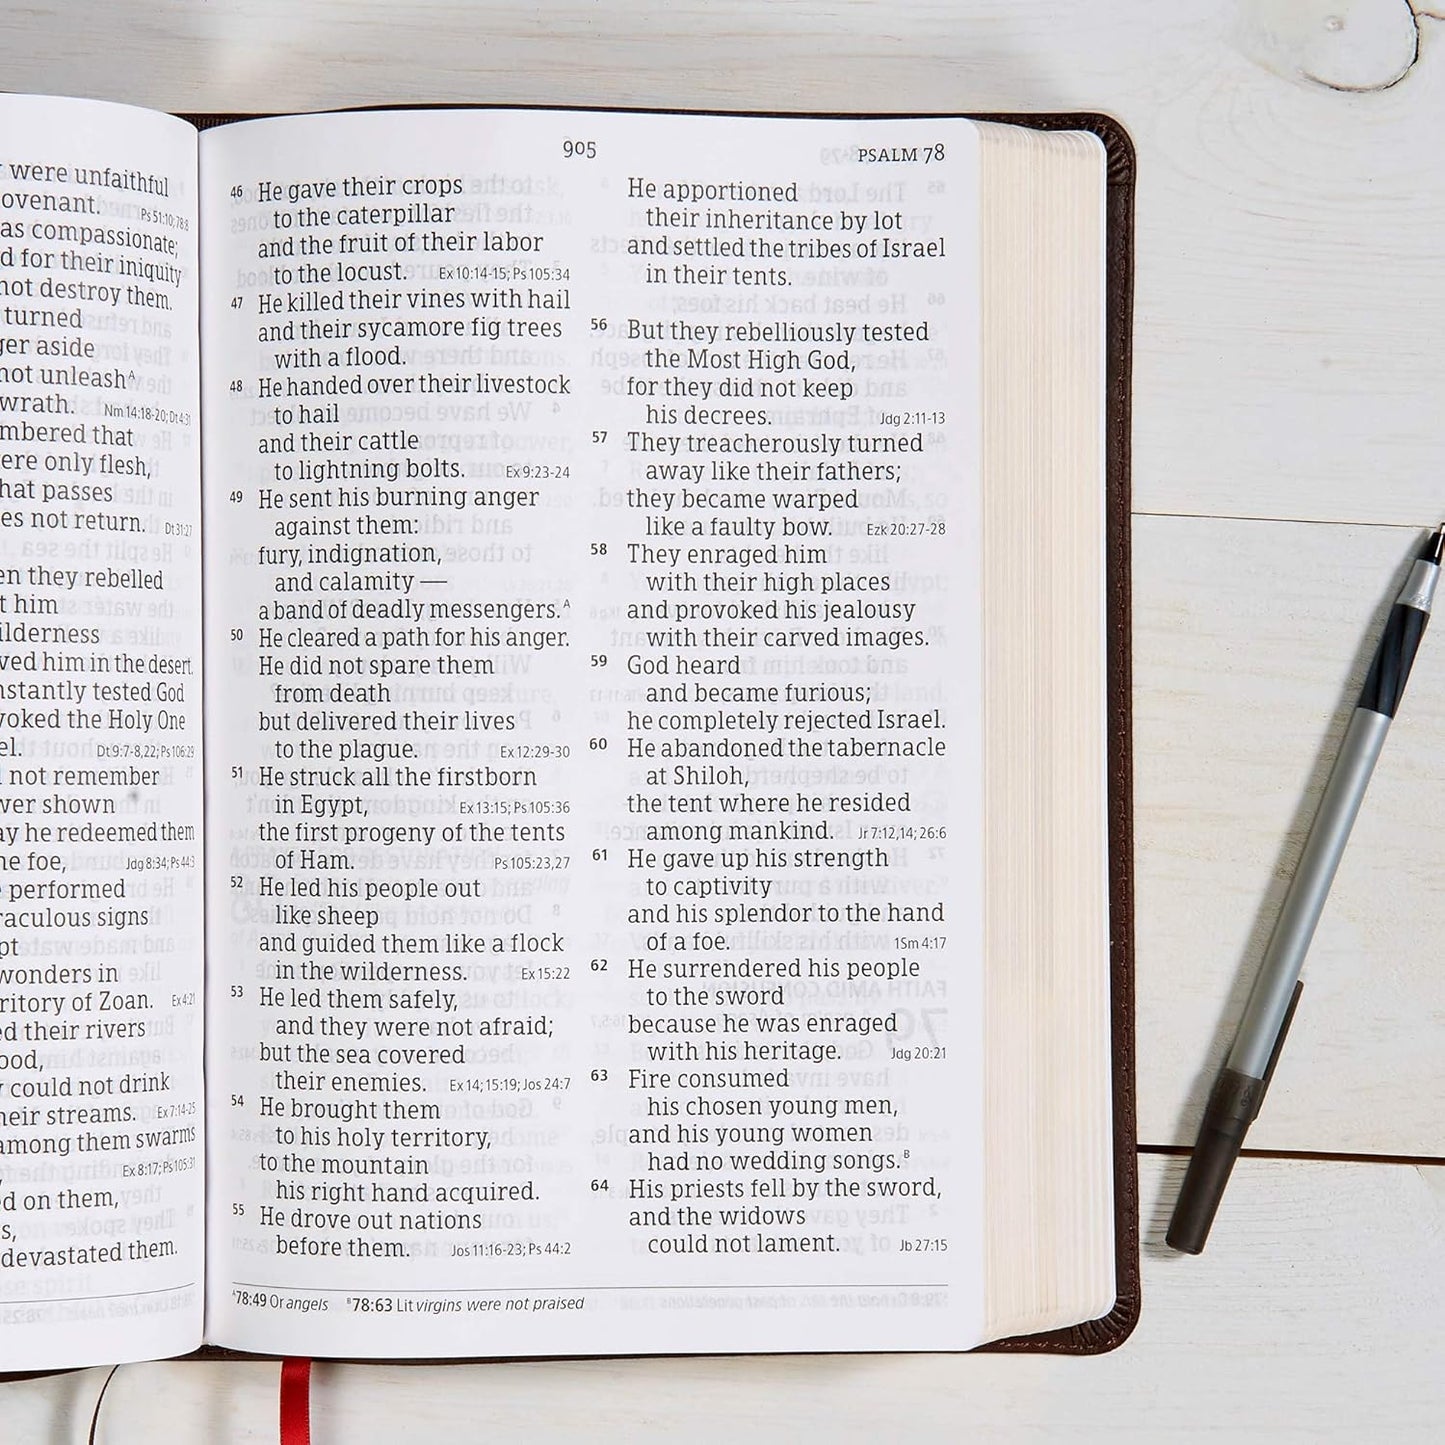 were unfaithful
ovenant. Ps 51:10; 78:8
as compassionate;
d for their iniquity
not destroy them.
turned
ger aside
not unleashᴬ
wrath. Nm 14:18-20; Dt 4:31
mbered that
ere only flesh,
hat passes
es not return. Dt 31:27
en they rebelled
t him
ilderness
ved him in the desert.
nstantly tested God
voked the Holy One
el. Dt 9:7-8,22; Ps 106:29
not remember
wer shown
ay he redeemed them
he foe, Jdg 8:34; Ps 44:3
performed
raculous signs
pt
wonders in
rritory of Zoan. Ex 4:21
ed their rivers
ood,
could not drink
heir streams. Ex 7:14-25
among them swarms
Ex 8:17; Ps 105:31
ed on them,
s,
devastated them.
905
PSALM 78
46 He gave their crops
to the caterpillar
and the fruit of their labor
to the locust. Ex 10:14-15; Ps 105:34
47 He killed their vines with hail
and their sycamore fig trees
with a flood.
48 He handed over their livestock
to hail
and their cattle
to lightning bolts. Ex 9:23-24
49 He sent his burning anger
against them:
fury, indignation,
and calamity —
a band of deadly messengers.ᴬ
50 He cleared a path for his anger.
He did not spare them
from death
but delivered their lives
to the plague. Ex 12:29-30
51 He struck all the firstborn
in Egypt, Ex 13:15; Ps 105:36
the first progeny of the tents
of Ham. Ps 105:23,27
52 He led his people out
like sheep
and guided them like a flock
in the wilderness. Ex 15:22
53 He led them safely,
and they were not afraid;
but the sea covered
their enemies. Ex 14; 15:19; Jos 24:7
54 He brought them
to his holy territory,
to the mountain
his right hand acquired.
55 He drove out nations
before them. Jos 11:16-23; Ps 44:2
He apportioned
their inheritance by lot
and settled the tribes of Israel
in their tents.
56 But they rebelliously tested
the Most High God,
for they did not keep
his decrees. Jdg 2:11-13
57 They treacherously turned
away like their fathers;
they became warped
like a faulty bow. Ezk 20:27-28
58 They enraged him
with their high places
and provoked his jealousy
with their carved images.
59 God heard
and became furious;
he completely rejected Israel.
60 He abandoned the tabernacle
at Shiloh,
the tent where he resided
among mankind. Jr 7:12,14; 26:6
61 He gave up his strength
to captivity
and his splendor to the hand
of a foe. 1Sm 4:17
62 He surrendered his people
to the sword
because he was enraged
with his heritage. Jdg 20:21
63 Fire consumed
his chosen young men,
and his young women
had no wedding songs.ᴮ
64 His priests fell by the sword,
and the widows
could not lament. Jb 27:15
ᴬ78:49 Or angels ᴮ78:63 Lit virgins were not praised